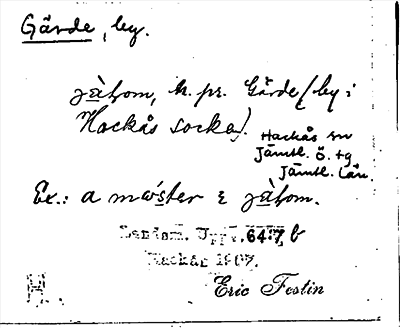 Gärde, by.
jàḥom, n. pr. Gärde (by i
Hackås socken).
Hackås sn
Jämtl. Ö. tg
Jämtl. län.
Ex.: a mæ̀ster ɛ jàḥom.
Landsm. Uppt. 647, b
Hackås 1907.
H. Eric Festin